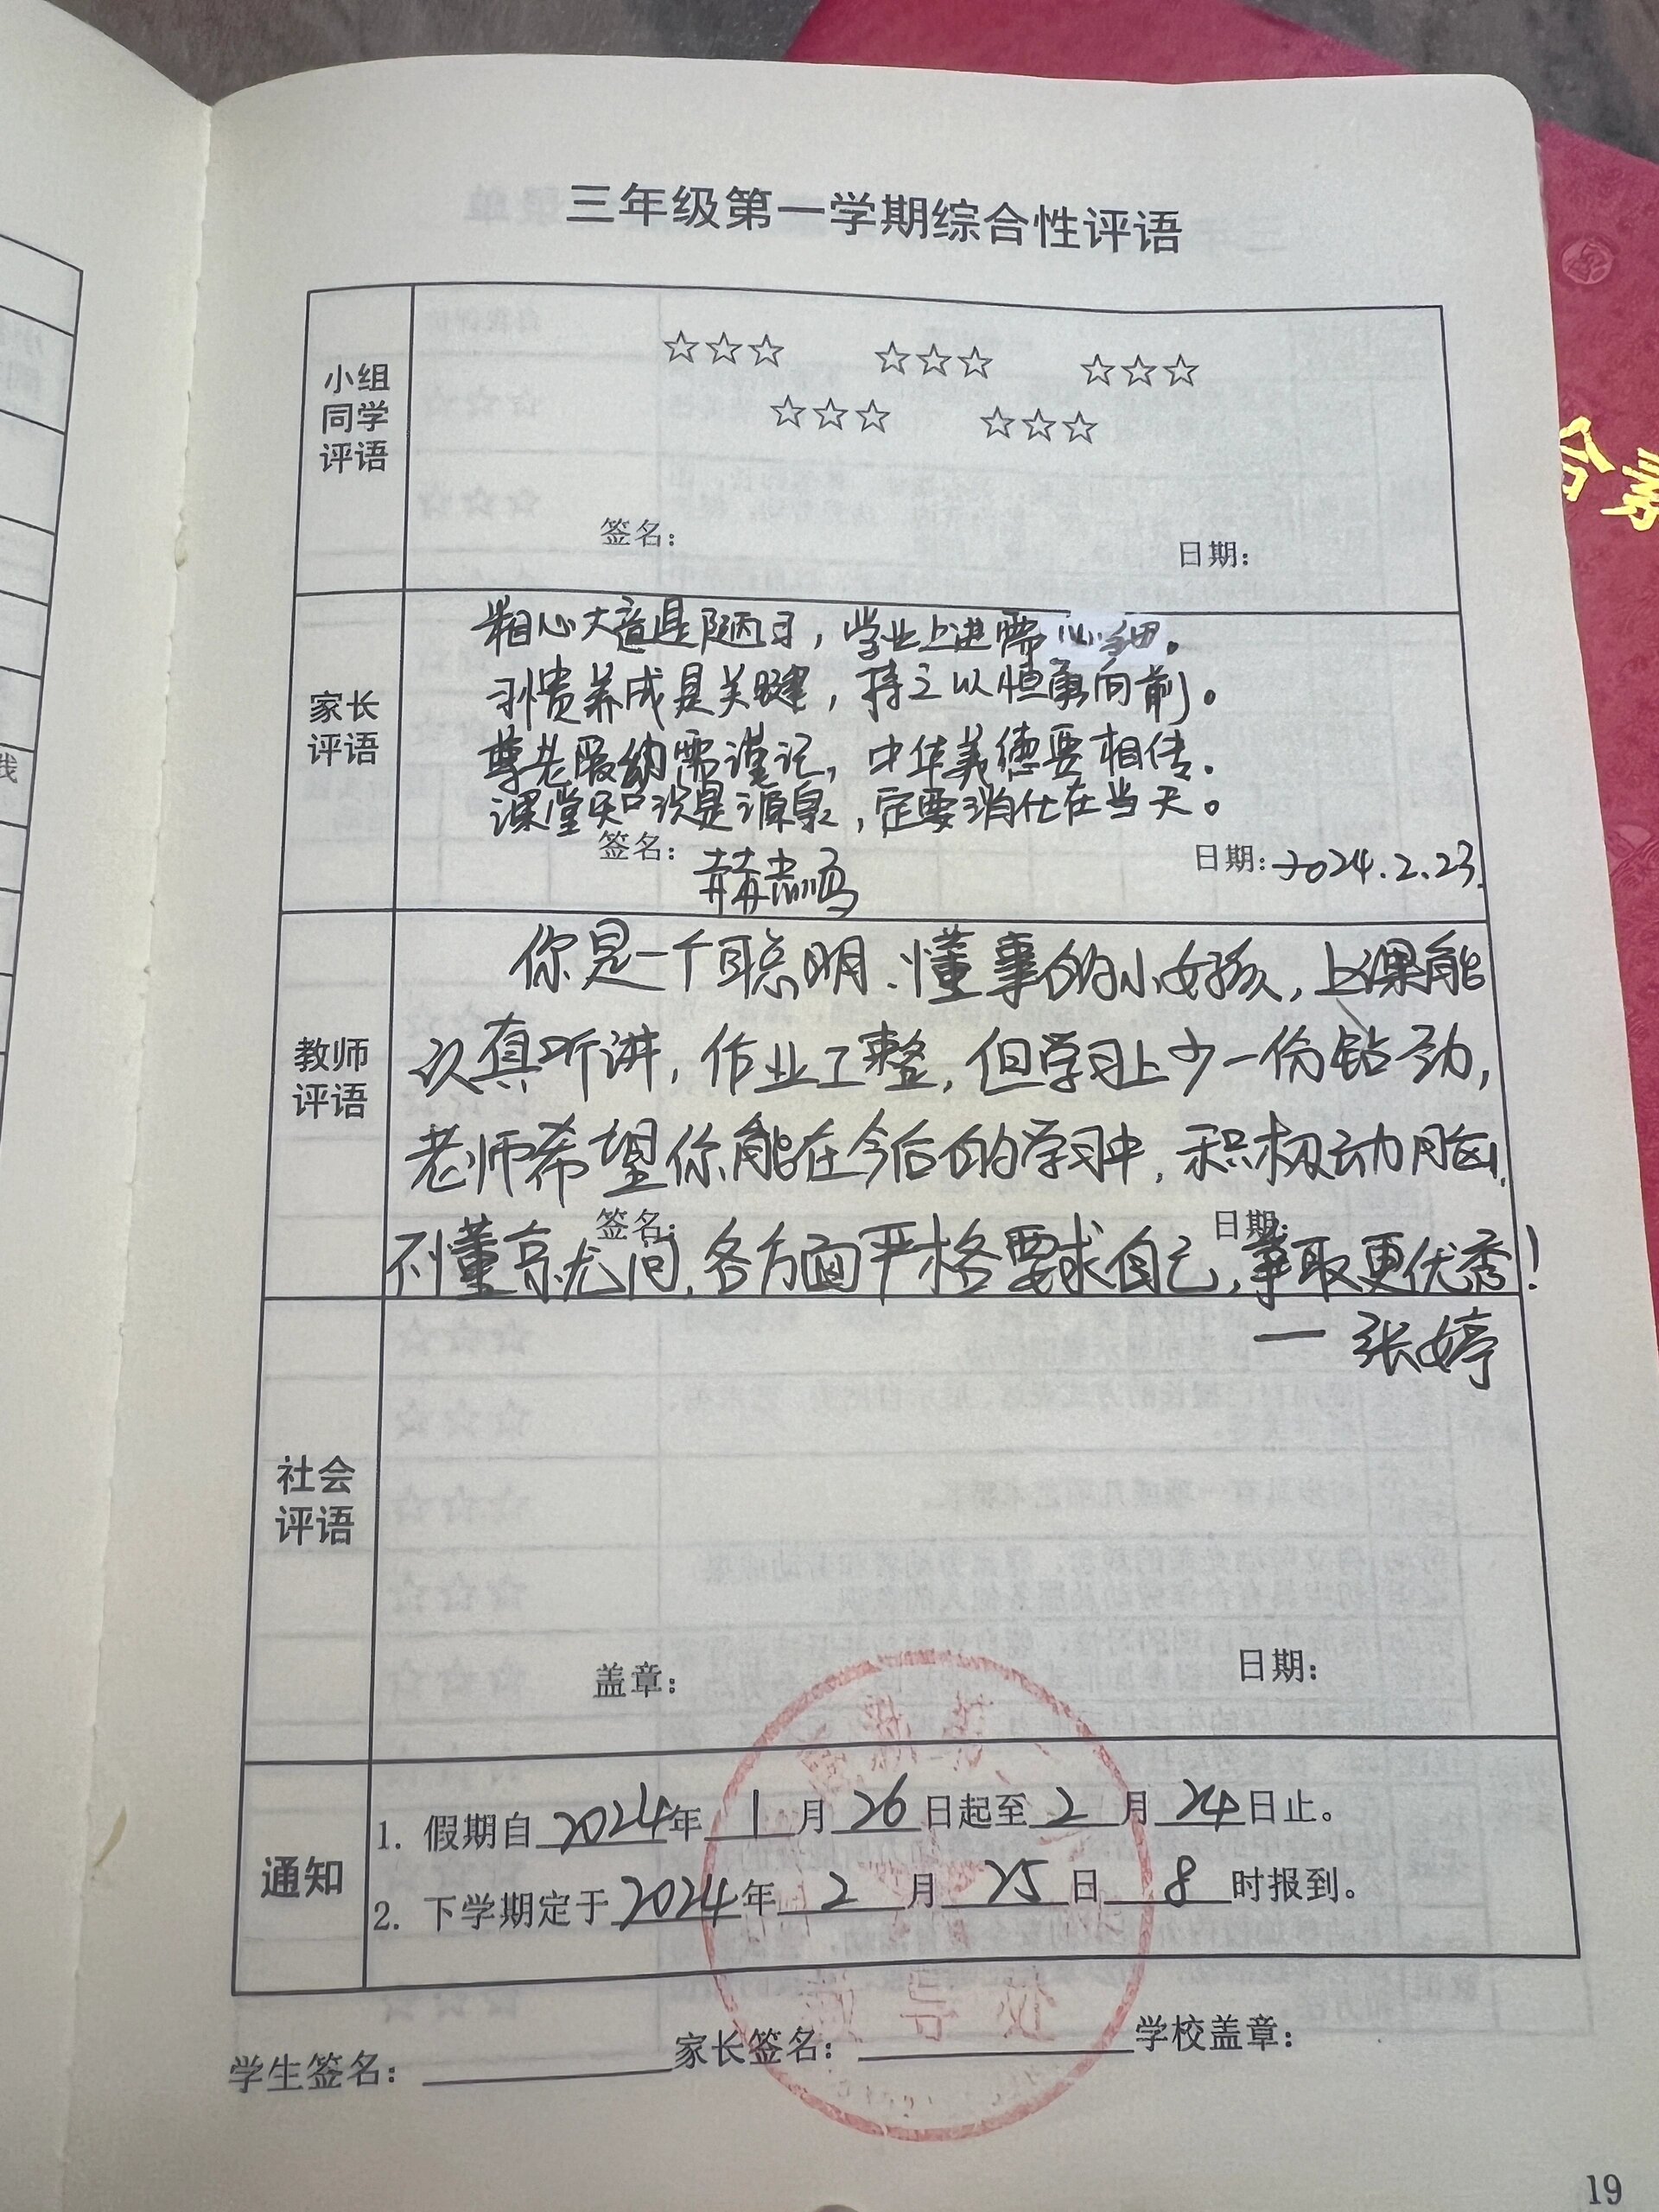 三年级第一学期综合性评语
小组
同学
评语
☆☆☆ ☆☆☆ ☆☆☆
☆☆☆ ☆☆☆
签名： 日期：
家长
评语
粗心大意是陋习，学业上进需心细。
习惯养成是关键，持之以恒勇向前。
尊老爱幼需谨记，中华美德要相传。
课堂知识是源泉，定要消化在当天。
签名： 日期：2024.2.23.
教师
评语
你是一个聪明、懂事的小女孩，上课能
认真听讲，作业工整，但学习上少一份钻劲，
老师希望你能在今后的学习中，积极动脑，
签名： 日期：
不懂就问，各方面严格要求自己，争取更优秀！
— 张婷
社会
评语
盖章： 日期：
通知
1. 假期自2024年1月26日起至2月24日止。
2. 下学期定于2024年2月25日8时报到。
教导处
学生签名： 家长签名： 学校盖章：
19